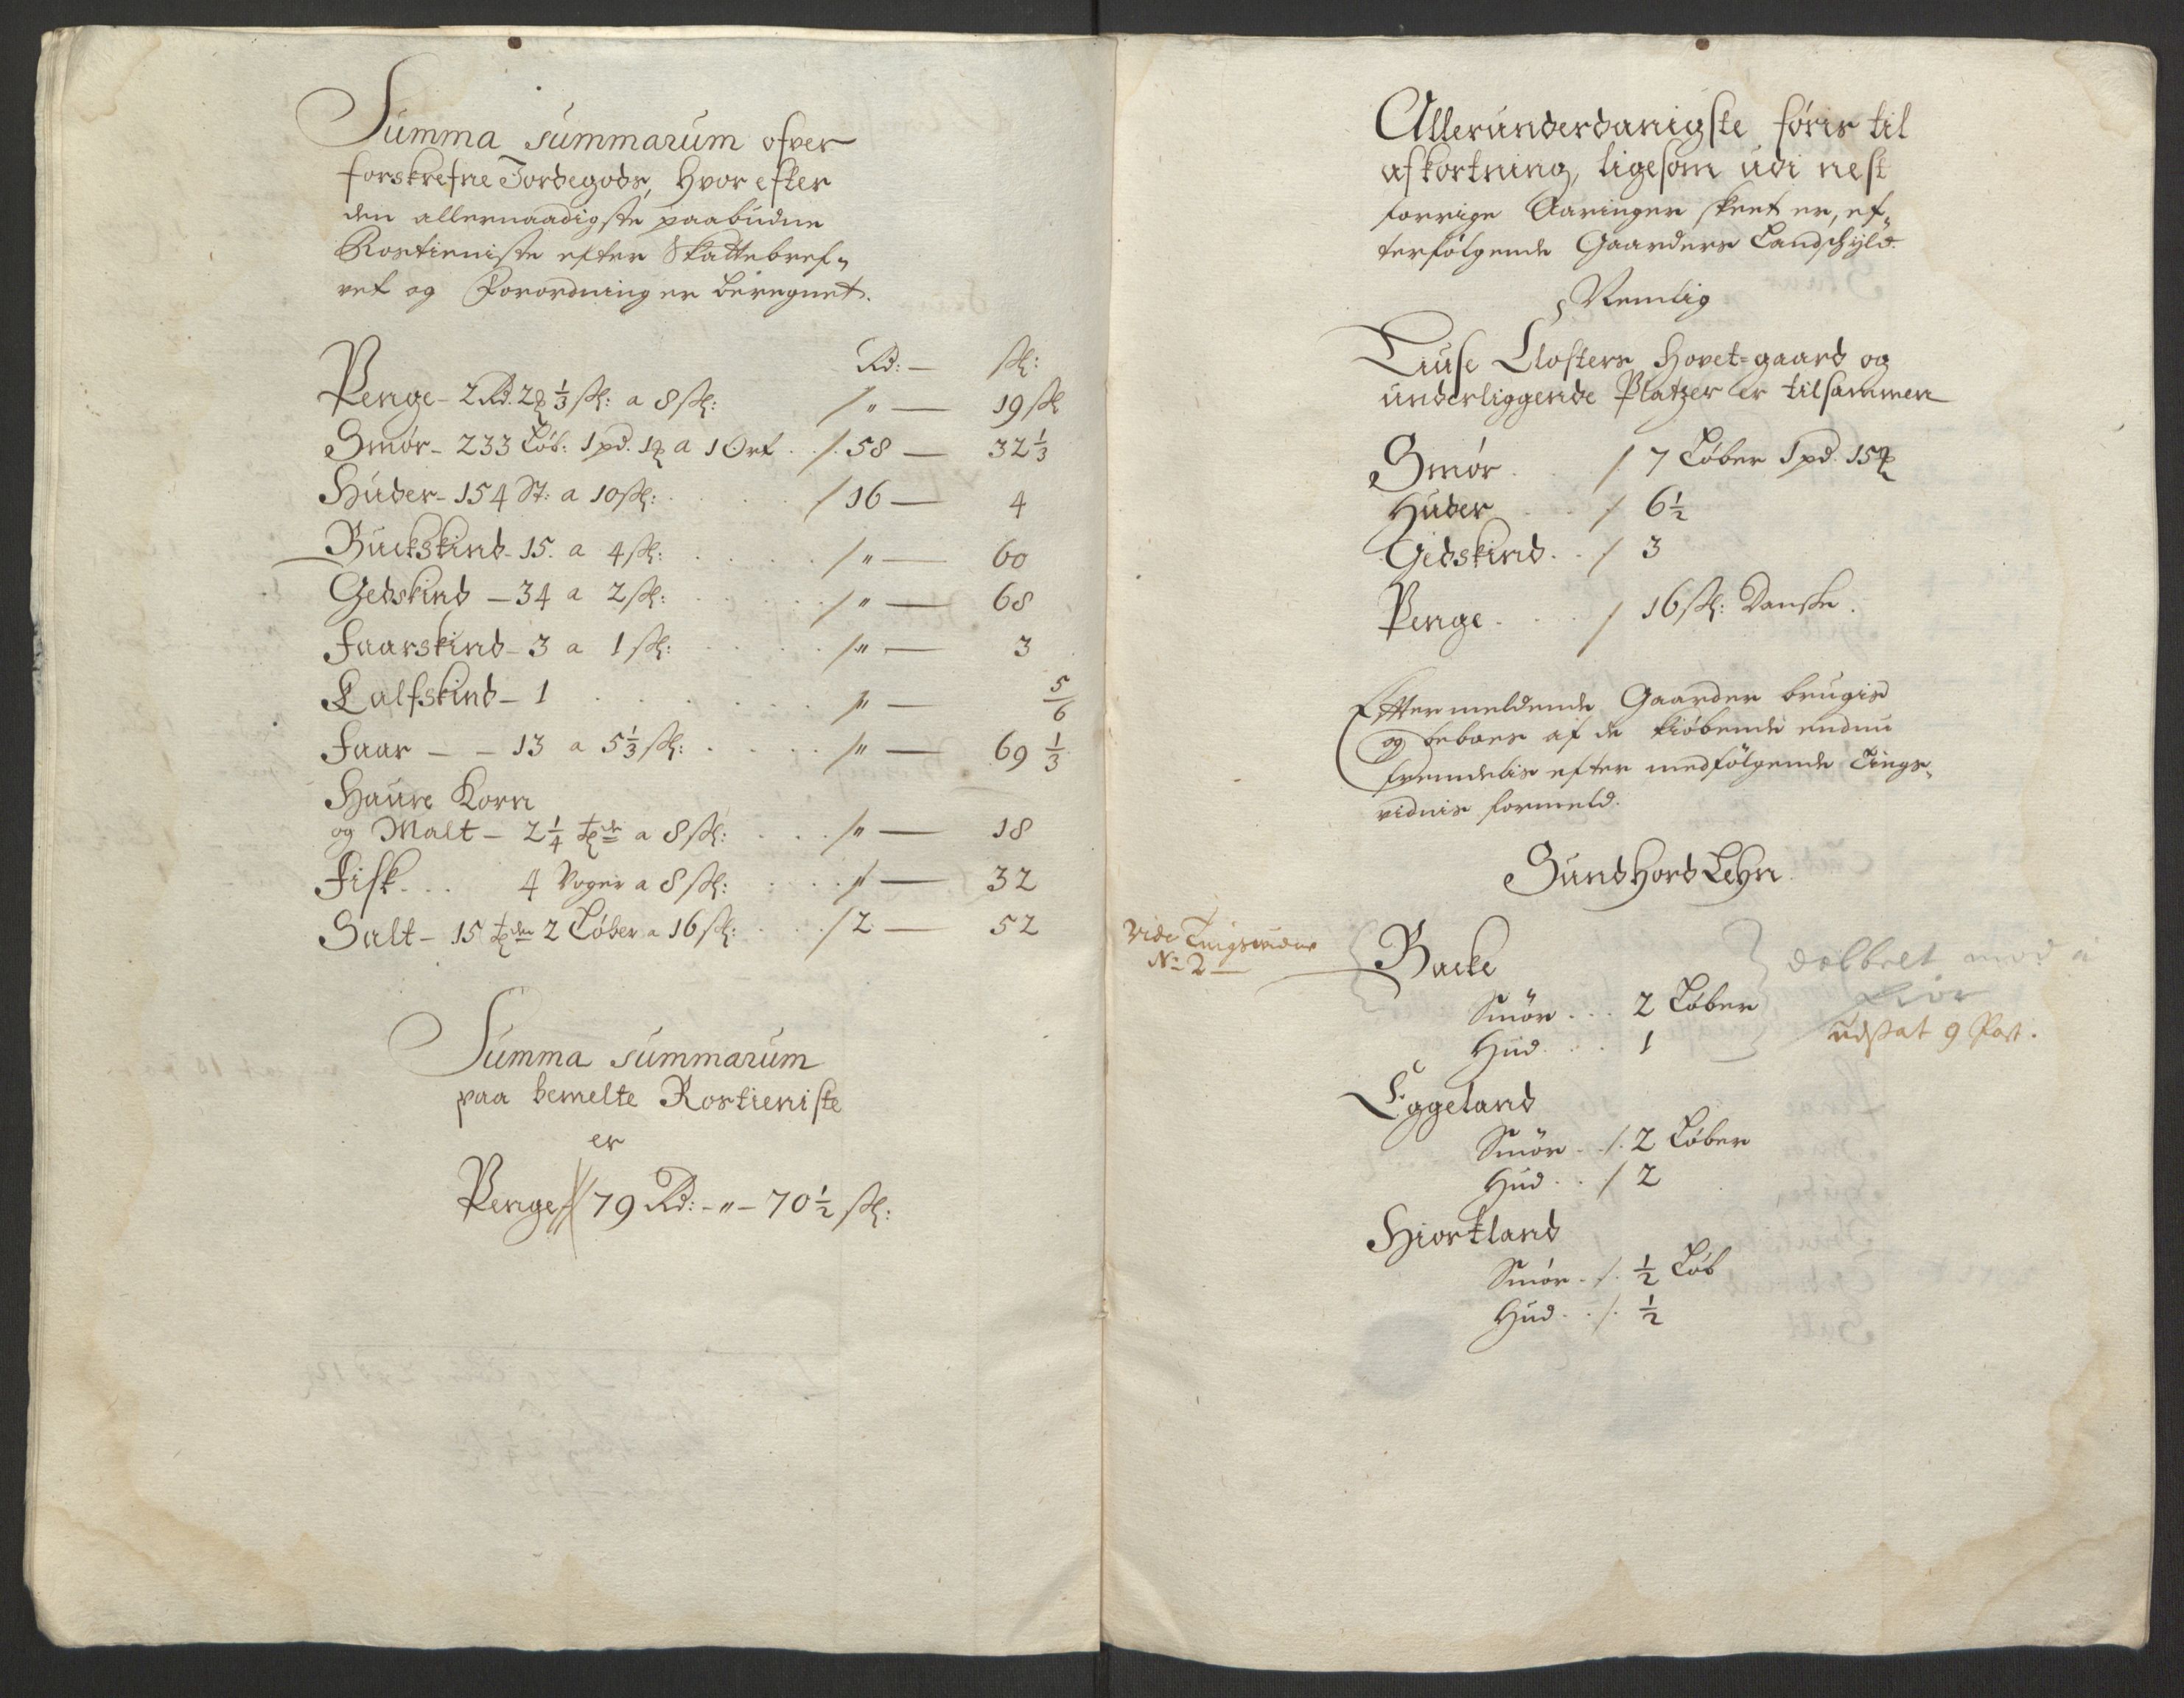 Summa summarum ofver
forskrefne Jordegods, Hvor efter
den allernaadigste paabudne
Rostieniste efter Skattebref-
vet og Forordninger beregnet.
Rd: — sk:
Penge - 2 Rd. 2 1/3 sk: a 8 sk: / " — 19 sk
Smör - 233 Löb: 1 pd. 1 a 1 Ort . . /. 58 — 32 1/3
Huder - 154 St: a 10 sk: . . . . / 16 — 4
Buckskind - 15. a 4 sk: . . . . / " — 60
Gedskind — 34 a 2 sk: . . . . / " — 68
Faarskind - 3 a 1 sk: . . . . / " — 3
Kalfskind - 1 . . . . . / " — 5/6
Faar — - 13 a 5 1/3 sk: . . . . / " — 69 1/3
Haure Korn
og Malt — 2 1/4 tde a 8 sk: . . . / " — 18
Fisk . . . 4 Voger a 8 sk: . . . / " — 32
Salt - 15 tder 2 Löber a 16 sk: . . . / 2 — 52
Summa summarum
paa bemelte Rostieniste
er
Penge // 79 Rd: - " - 70 1/2 sk:
Allerunderdanigste föris til
afkortning, ligesom udi nest
forrige Aaringer skeet er, ef-
terfölgende Gaarders Landschyld.
Nemlig
Liuse Closters Hovet=gaard og
underliggende Platzer er tilsammen
Smör . . . / 7 Löber 1 pd. 15
Huder . . . / 6 1/2
Gidskind . . / 3
Penge . . . . / 16 sk: Danske.
Eftermeldende Gaarder brugis
og beboes af de kiöbende endnu
fremdelis efter medfölgende Tings-
vidnis formeld.
SundhordLehn
Vide Tingsvidne
No 2 —
Backe
Smör . . . 2 Löber
Hud . . . 1
udsat 9 Post.
Eggeland
Smör . . /. 2 Löber
Hud . . / 2
Hiortland
Smör . /. 1/2 Löb
Hud . . /. 1/2